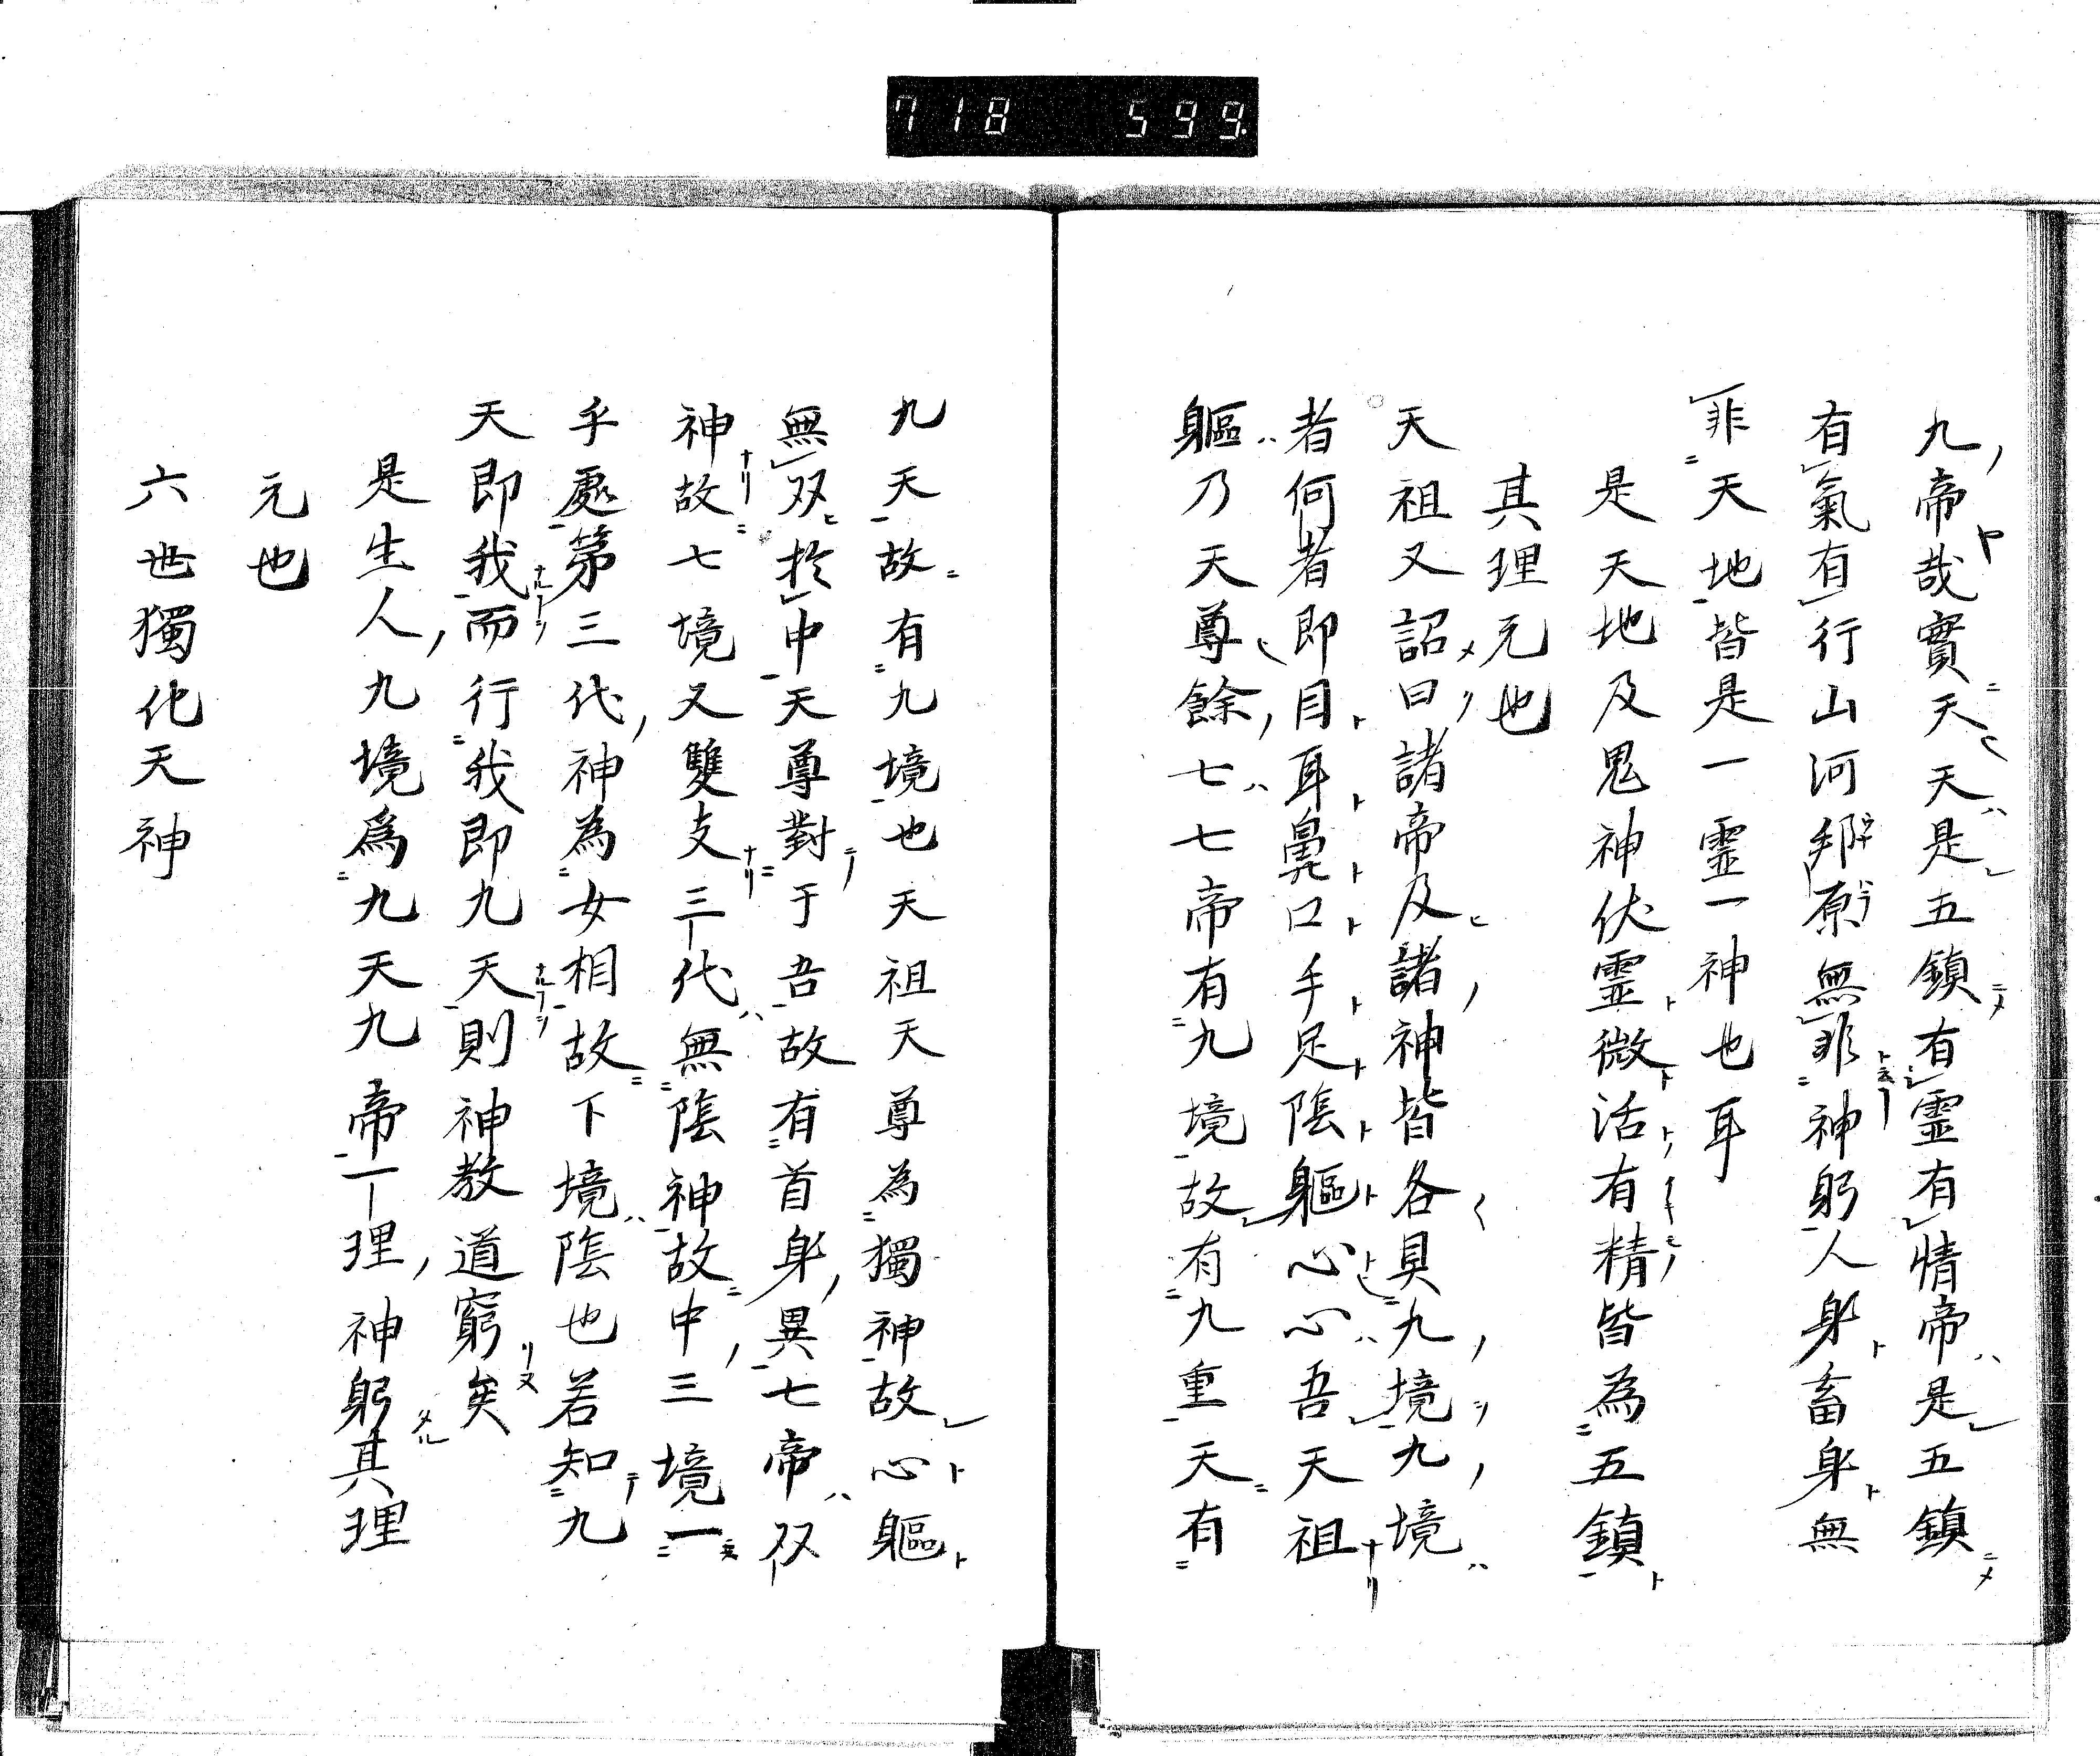 718 599.
九帝哉實天天是五鎮有霊有情帝是五鎮
有氣有行山河邦原無非神躬人身畜身無
非天地皆是一霊一神也耳
是天地及鬼神伏霊微活有精皆為五鎮
其理元也
天祖又詔曰諸帝及諸神皆各具九境九境
者何者即目耳鼻口手足陰軀心心吾天祖
軀乃天尊餘七七帝有九境故有九重天有
九天故有九境也天祖天尊為獨神故心軀
無双於中天尊對于吾故有首身異七帝双
神故七境又雙支三代無陰神故中三境一
乎處第三代神為女相故下境陰也若知九
天即我而行我即九天則神教道窮矣
是生人九境爲九天九帝一理神躬其理
元也
六世獨化天神